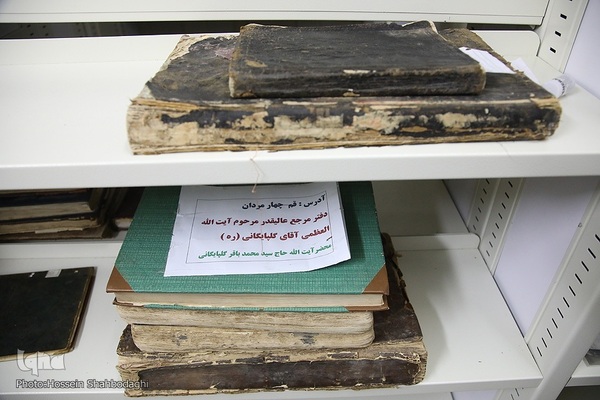 آدرس : قم - چهار مردان
دفتر مرجع عالیقدر مرحوم آیت الله
العظمی آقای گلپایگانی (ره )
محضر آیت الله حاج سید محمد باقر گلپایگانی
iqna
Photo:Hossein Shahbodaghi